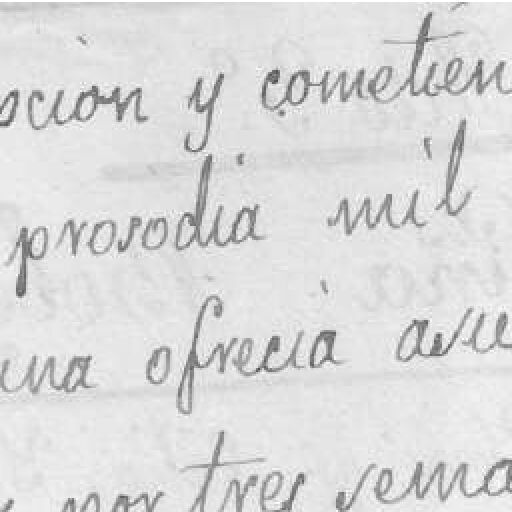 scion y cometien
prosodia mil
una ofrecia asu
por tres sema